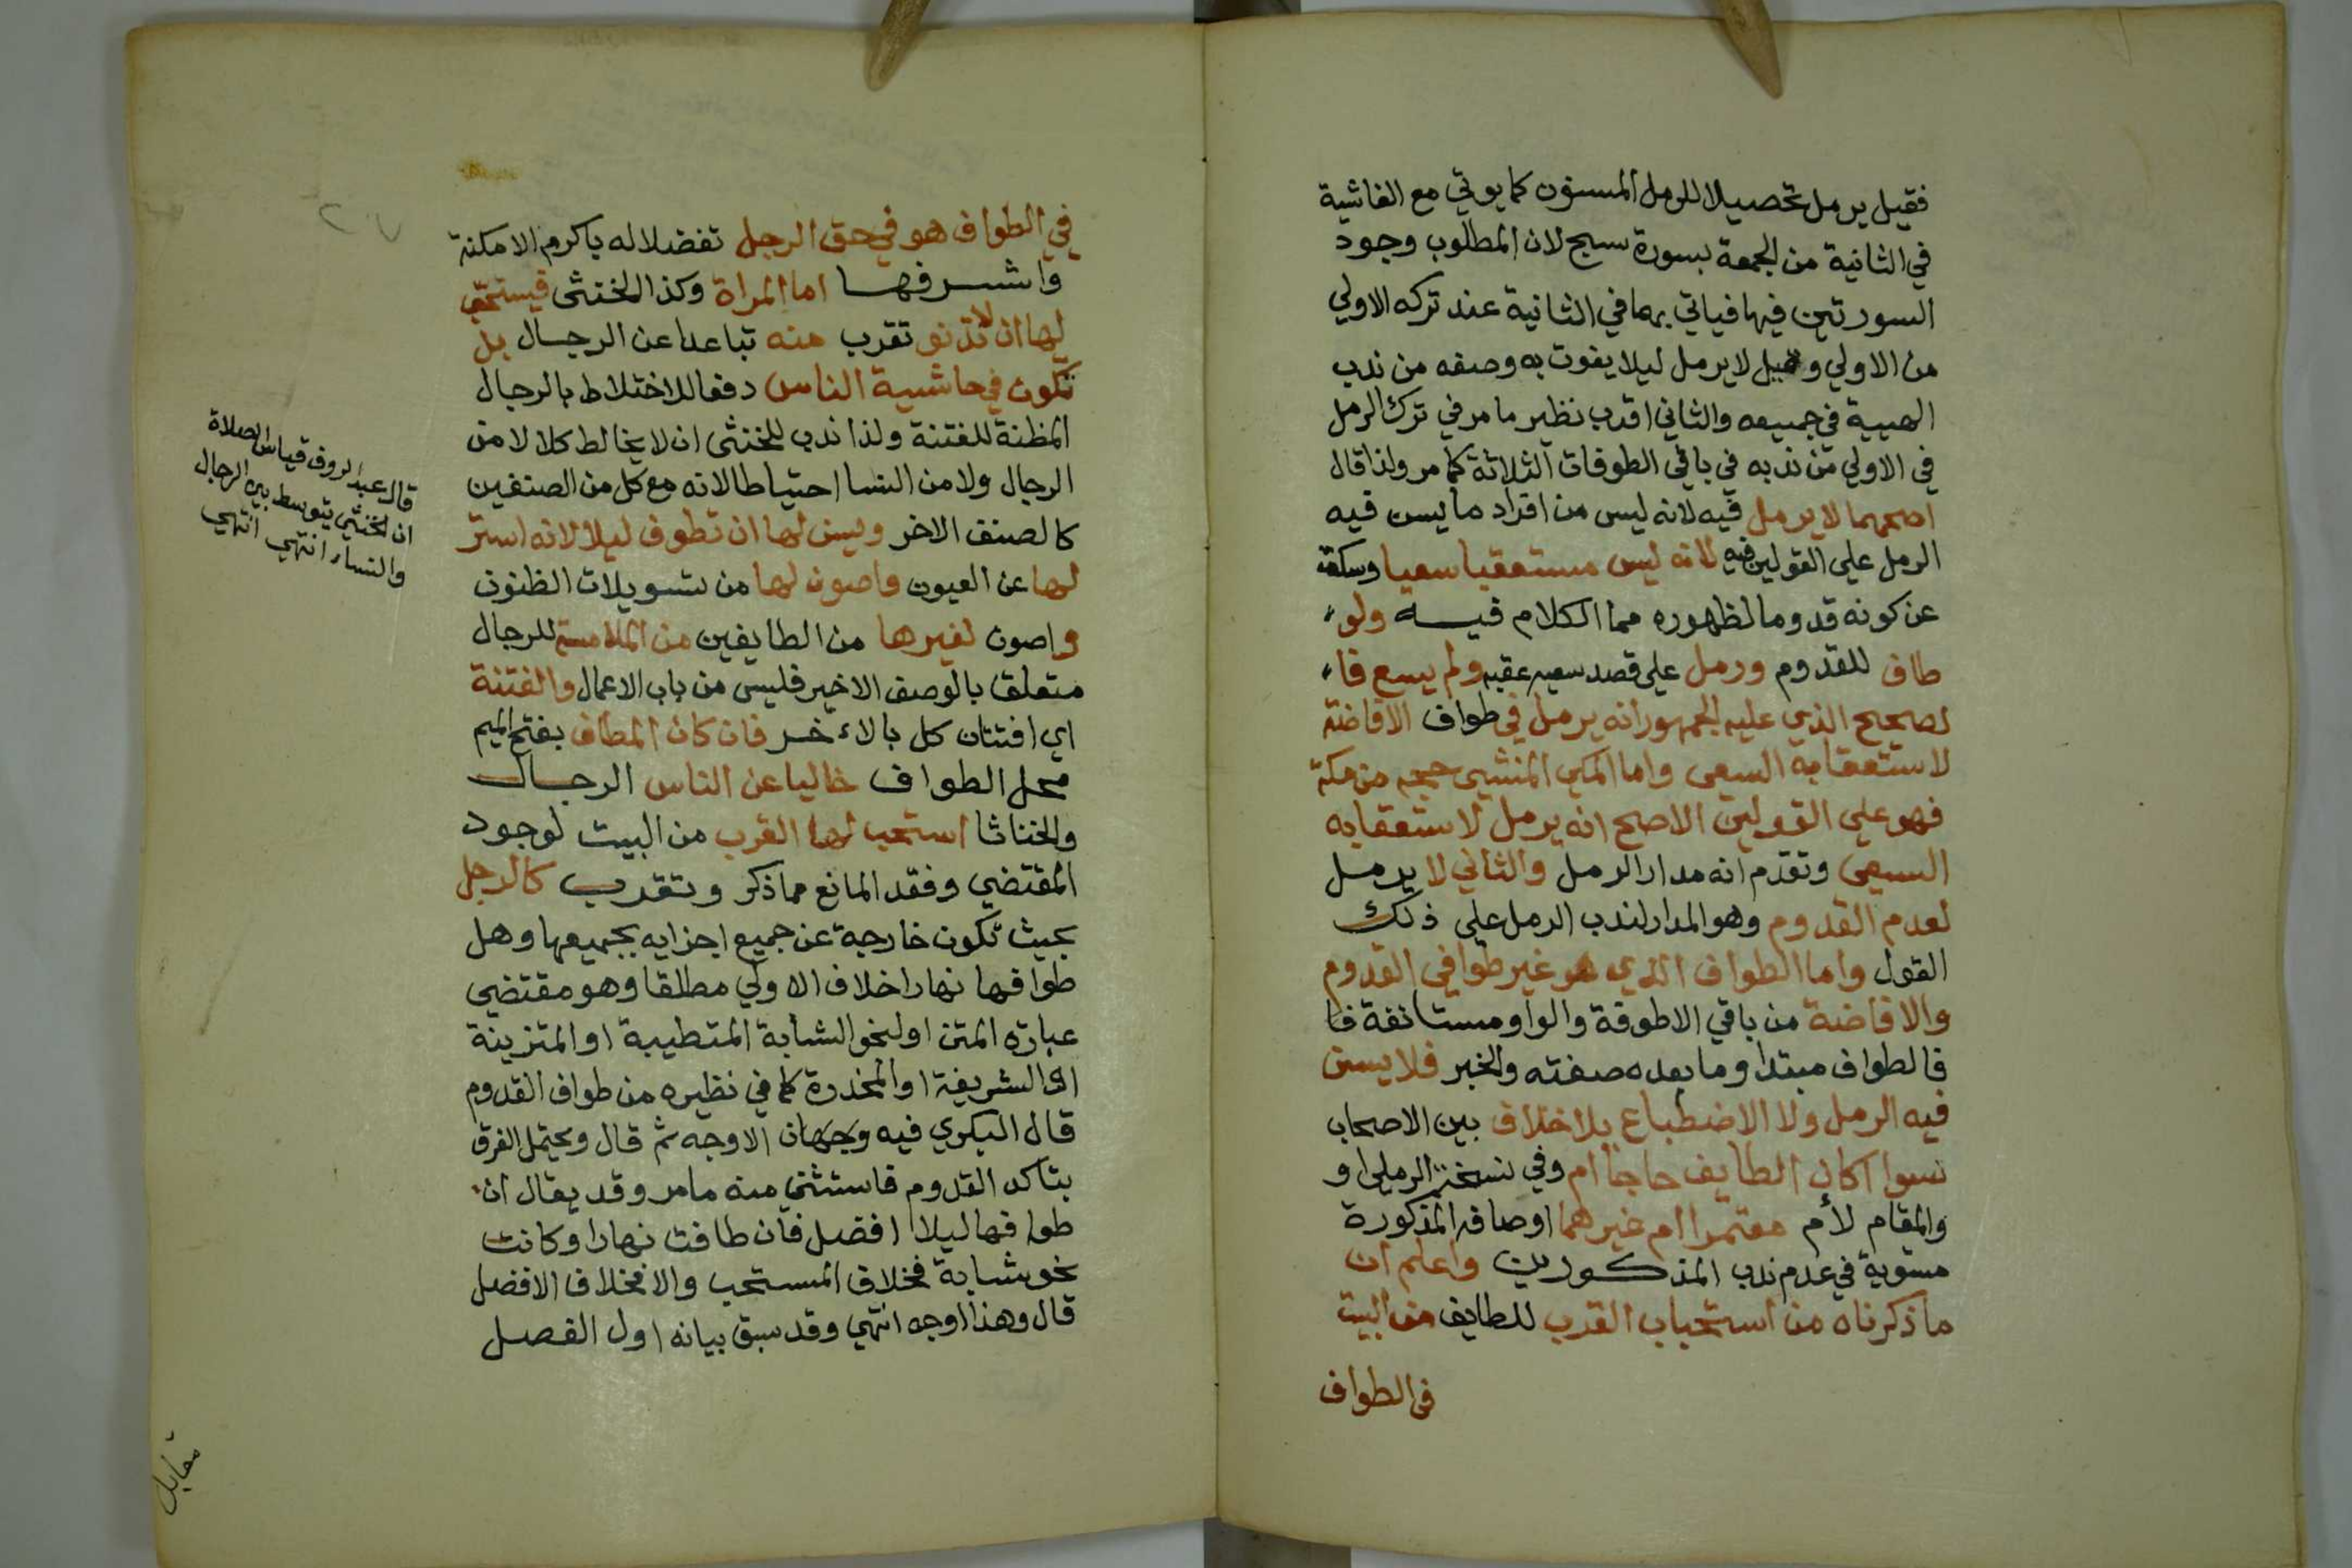 فقيل يرمل تحصيلا للرمل المسنون كما يوتي مع الغاشية
في الثانية من الجمعة بسورة سبح لان المطلوب وجود
السورتين فيها فياتي بهما في الثانية عند تركه الاولي
من الاولي وقيل لا يرمل ليلا يفوت به وصفه من ندب
الهيية في جميعه والثاني اقرب نظير ما مر في ترك الرمل
في الاولي من ندبه في باقي الطوفات الثلاثة كما مر ولذا قال
اصحهما لا يرمل فيه لانه ليس من افراد ما يسن فيه
الرمل علي القولين فيه لانه ليس مستعقبا سعيا وسكت
عن كونه قدوما لظهوره مما الكلام فيه ولو
طاف للقدوم ورمل علي قصد سعيه عقبه ولم يسع فا
لصحيح الذي عليه الجمهور انه يرمل في طواف الافاضة
لاستعقابه السعي واما المكي المنشي حجه من مكة
فهو علي القولين الاصح انه يرمل لاستعقابه
السعي وتقدم انه مدار الرمل والثاني لا يرمل
لعدم القدوم وهو المدار لندب الرمل علي ذلك
القول واما الطواف الذي هو غير طوافي القدوم
والافاضة من باقي الاطوفة والواو مستانفة فا
فالطواف مبتدا وما بعده صفته والخبر فلا يسن
فيه الرمل ولا الاضطباع بلا خلاف بين الاصحاب
نسوا اكان الطايف حاجا ام وفي نسخة الرملي او
والمقام لأم معتمرا ام غيرهما اوصافه المذكورة
مستوية في عدم ندب المذكورين واعلم ان
ما ذكرناه من استحباب القرب للطايف من البيت
في الطواف
في الطواف هو في حق الرجل تفضلا له باكرم الامكنة
واشرفها اما المراة وكذا الخنثى فيستحب
لها ان لا تدنو تقرب منه تباعدا عن الرجال بل
تكون في حاشية الناس دفعا للاختلاط بالرجال
المظنة للفتنة ولذا ندب للخنثى ان لا يخالط كلا لا من
الرجال ولا من النسا احتياطا لانه مع كل من الصنفين
كالصنف الاخر ويسن لها ان تطوف ليلا لانه استر
لها عن العيون واصون لها من تسويلات الظنون
واصون لغيرها من الطايفين من الملامسة للرجال
متعلق بالوصف الاخير فليس من باب الاعمال والفتنة
اي افتتان كل بالاخر فان كان المطاف بفتح الميم
محل الطواف خاليا عن الناس الرجال
والخناثا استحب لها القرب من البيت لوجود
المقتضي وفقد المانع مما ذكر وتقرب كالرجل
بحيث تكون خارجة عن جميع اجزايه بجميعها وهل
طوافها نهارا خلاف الاولي مطلقا وهو مقتضي
عبارة المتن او لنحو الشابة المتطيبة او المتزينة
او الشريفة او المخدرة كما في نظيره من طواف القدوم
قال البكري فيه وجهان الاوجه ثم قال ويحتمل الفرق
بتاكد القدوم فاستثني منه ما مر وقد يقال ان
طوافها ليلا افضل فان طافت نهارا وكانت
نحو شابة فخلاف المستحب والا فخلاف الافضل
قال وهذا اوجه انتهي وقد سبق بيانه اول الفصل
قال عبد الروف قياس الصلاة
ان الخنثي يتوسط بين الرجال
والنساء انتهي انتهي
مقابل